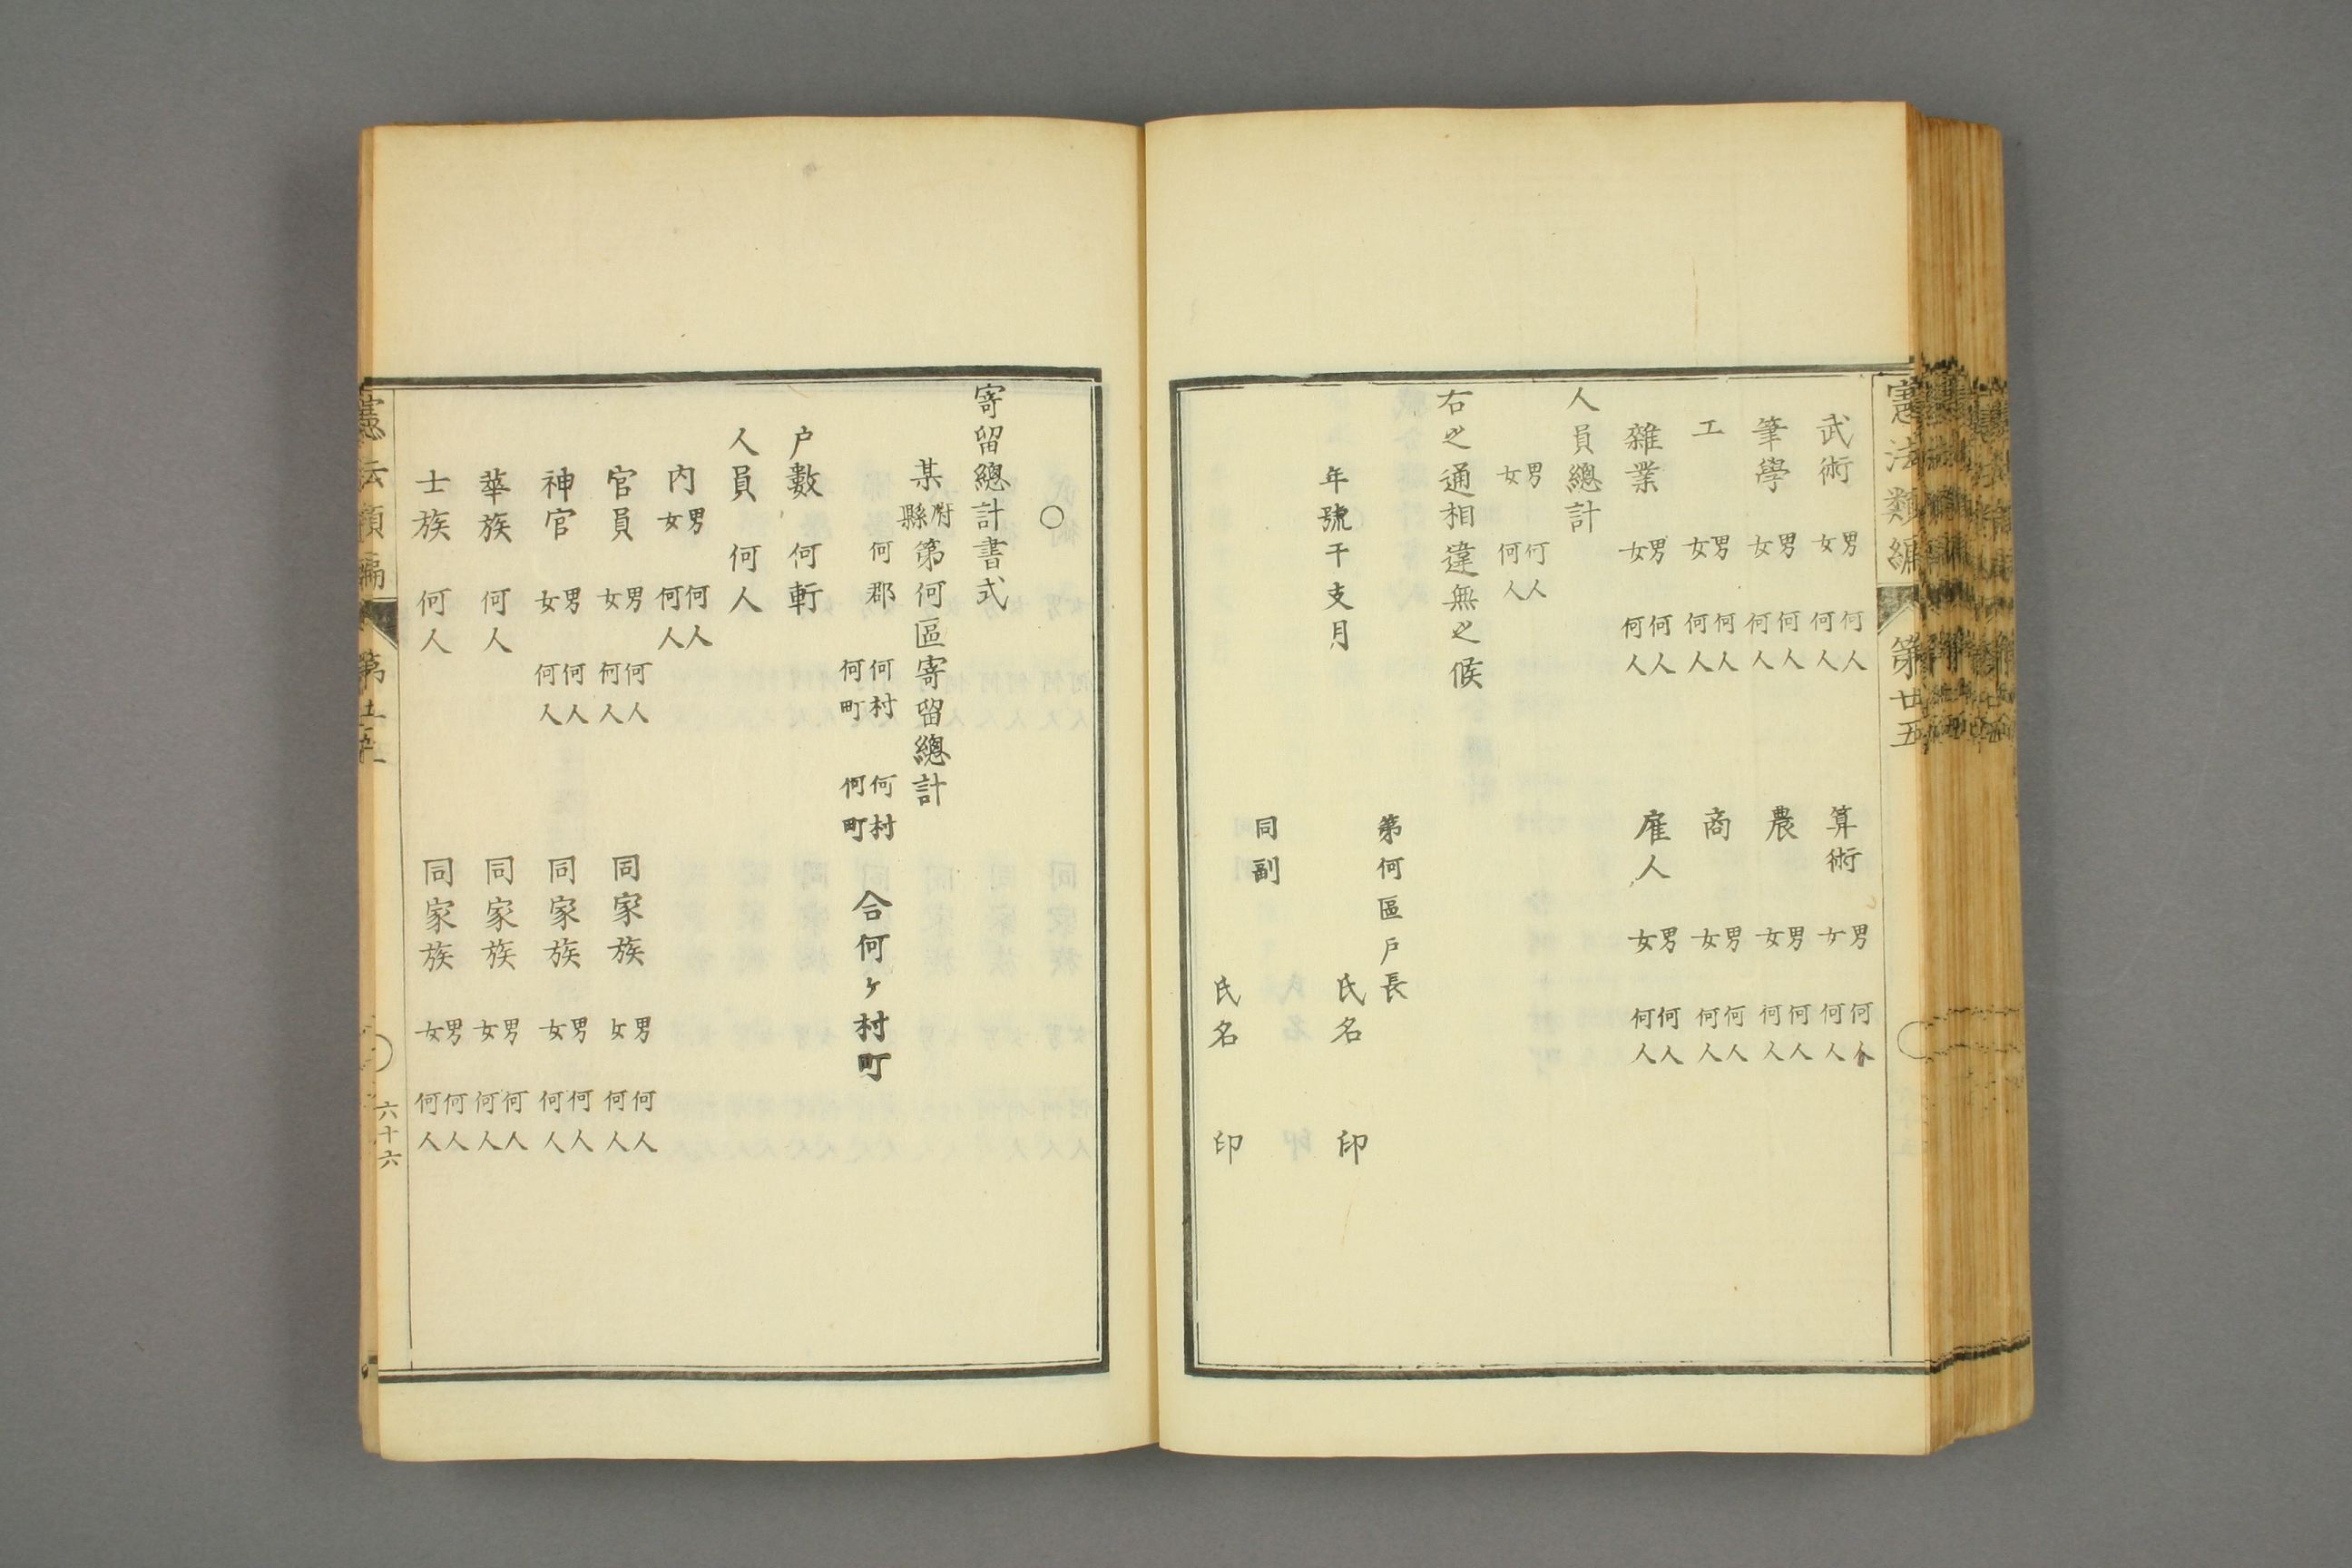 憲法類編 第廿五
武術 男女 何人何人 算術 男女 何人何人
筆學 男女 何人何人 農 男女 何人何人
工 男女 何人何人 商 男女 何人何人
雜業 男女 何人何人 雇人 男女 何人何人
人員總計
男 何人
女 何人
右之通相違無之候
第何區戸長
氏名 印
年號干支月
同副
氏名 印
○
寄留總計書式
某府縣第何區寄留總計
何郡 何村 何村
何町 何町 合何ヶ村町
户數 何軒
人員 何人
内 男女 何人何人
官員 男女 何人何人 同家族 男女 何人何人
神官 男女 何人何人 同家族 男女 何人何人
華族 何人 同家族 男女 何人何人
士族 何人 同家族 男女 何人何人
六十六